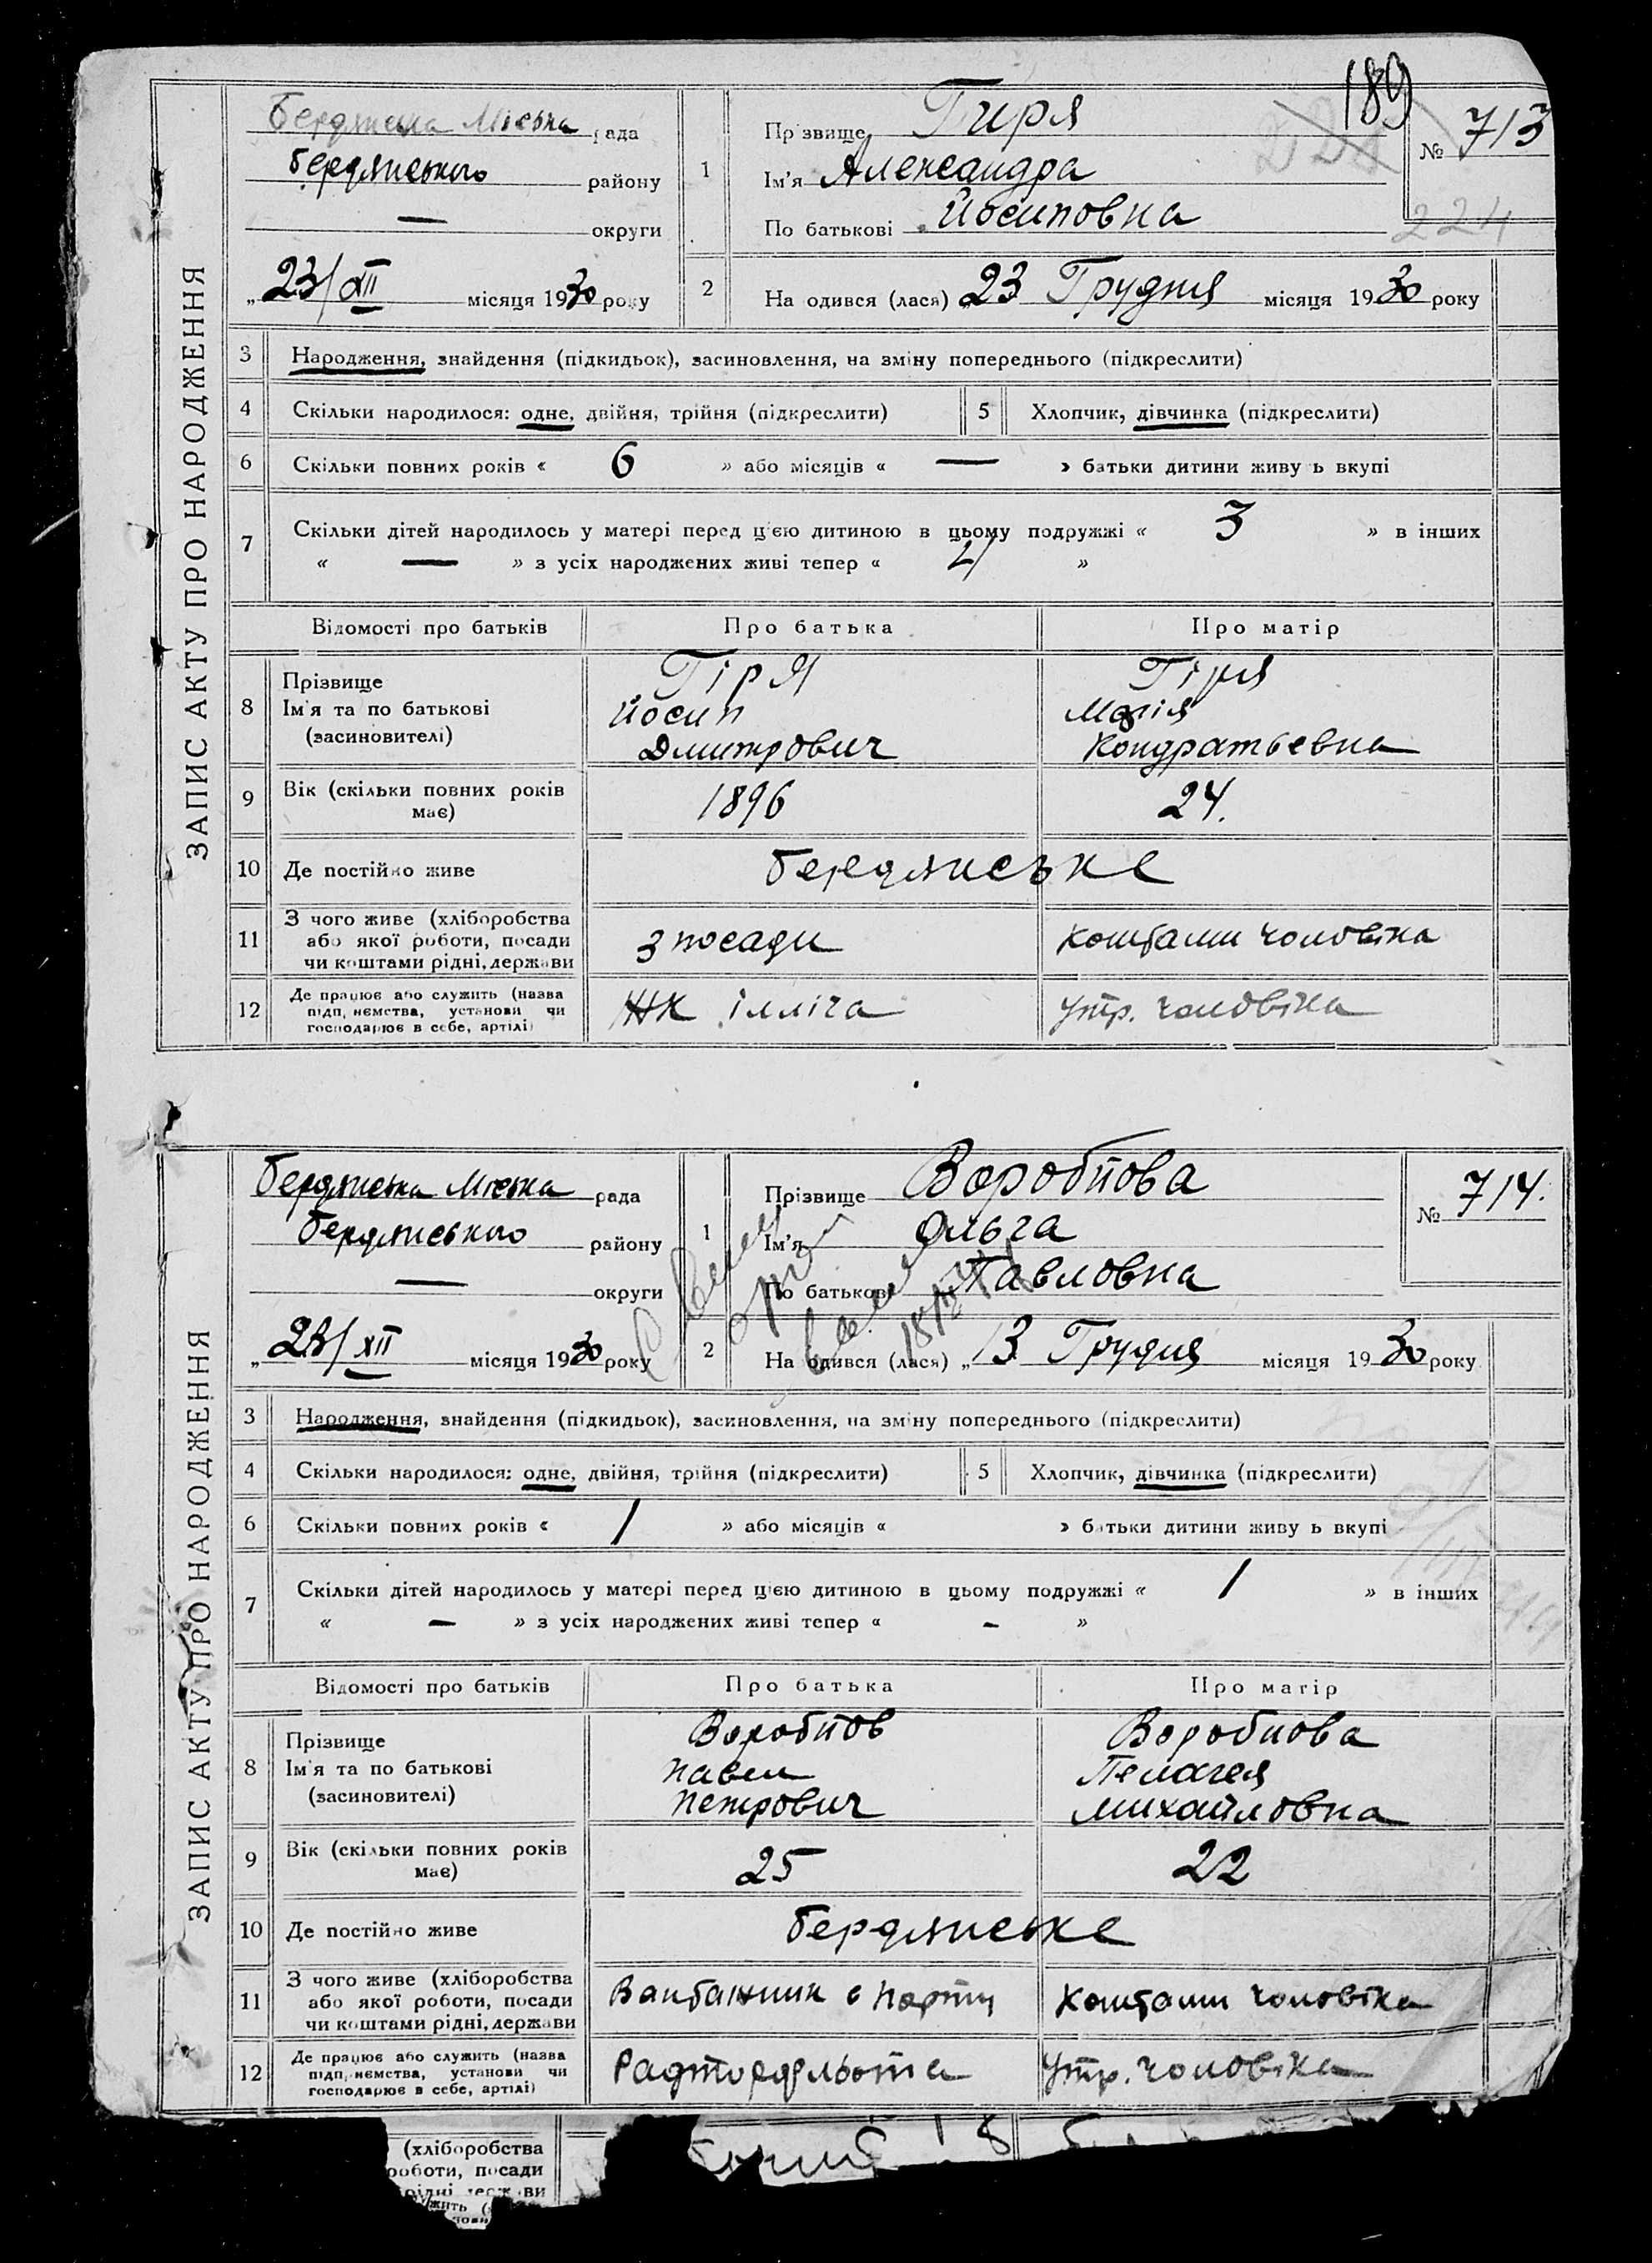 189
ЗАПИС АКТУ ПРО НАРОДЖЕННЯ
Бердянська Міська рада
Бердянського району
— округи
„23/XII місяця 1930 року
1
Прізвище Гиря
Ім'я Александра
По батькові Йосиповна
№ 713
224
2
На одився (лася) „23 Грудня місяця 1930 року
3 Народження, знайдення (підкидьок), засиновлення, на зміну попереднього (підкреслити)
4 Скільки народилося: одне, двійня, трійня (підкреслити) 5 Хлопчик, дівчинка (підкреслити)
6 Скільки повних років « 6 » або місяців « — » батьки дитини живу ь вкупі
7 Скільки дітей народилось у матері перед цією дитиною в цьому подружжі « 3 » в інших
« — » з усіх народжених живі тепер « »
Відомості про батьків Про батька Про матір
8 Прізвище Гіря Гіря
Ім'я та по батькові Йосип Марія
(засиновителі) Дмитрович Кондратьевна
9 Вік (скільки повних років має) 1896 24.
10 Де постійно живе Бердянське
11 З чого живе (хліборобства
або якої роботи, посади з посади коштами чоловіка
чи коштами рідні, держави
12 Де працює або служить (назва
підп, иємства, установи чи ЖК ілліча утр. чоловіка
господарює в себе, артілі)
ЗАПИС АКТУ ПРО НАРОДЖЕННЯ
Бердянська Міська рада
Бердянського району
— округи
„23/XII місяця 1930 року
1
Прізвище Воробйова
Ім'я Ольга
По батькові Павловна
№ 714.
2
На одився (лася) „13 Грудня місяця 1930 року
3 Народження, знайдення (підкидьок), засиновлення, на зміну попереднього (підкреслити)
4 Скільки народилося: одне, двійня, трійня (підкреслити) 5 Хлопчик, дівчинка (підкреслити)
6 Скільки повних років « 1 » або місяців « » батьки дитини живу ь вкупі
7 Скільки дітей народилось у матері перед цією дитиною в цьому подружжі « 1 » в інших
« – » з усіх народжених живі тепер « - »
Відомості про батьків Про батька Про матір
8 Прізвище Воробйов Воробйова
Ім'я та по батькові Павел Пелагея
(засиновителі) Петрович Михайловна
9 Вік (скільки повних років має) 25 22
10 Де постійно живе Бердянське
11 З чого живе (хліборобства
або якої роботи, посади порту коштами чоловіка
чи коштами рідні, держави
12 Де працює або служить (назва
підп, иємства, установи чи утр. чоловіка
господарює в себе, артілі)
(хліборобства
роботи, посади
рідні держ ви